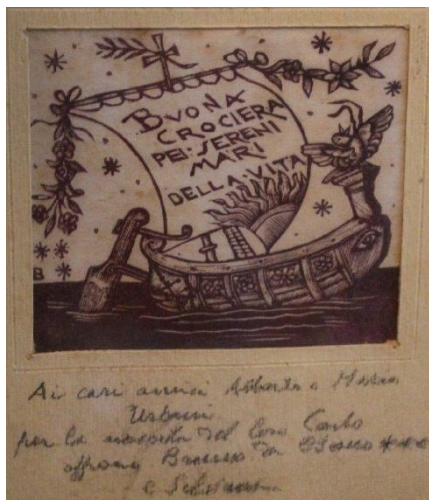 BUONA
CROCIERA
PEI·SERENI
MARI
DELLA·VITA
B
Ai cari amici Alberto e Maria
Urbani
per la nascita del loro Carlo
offrono Bruno da Osimo ***
e